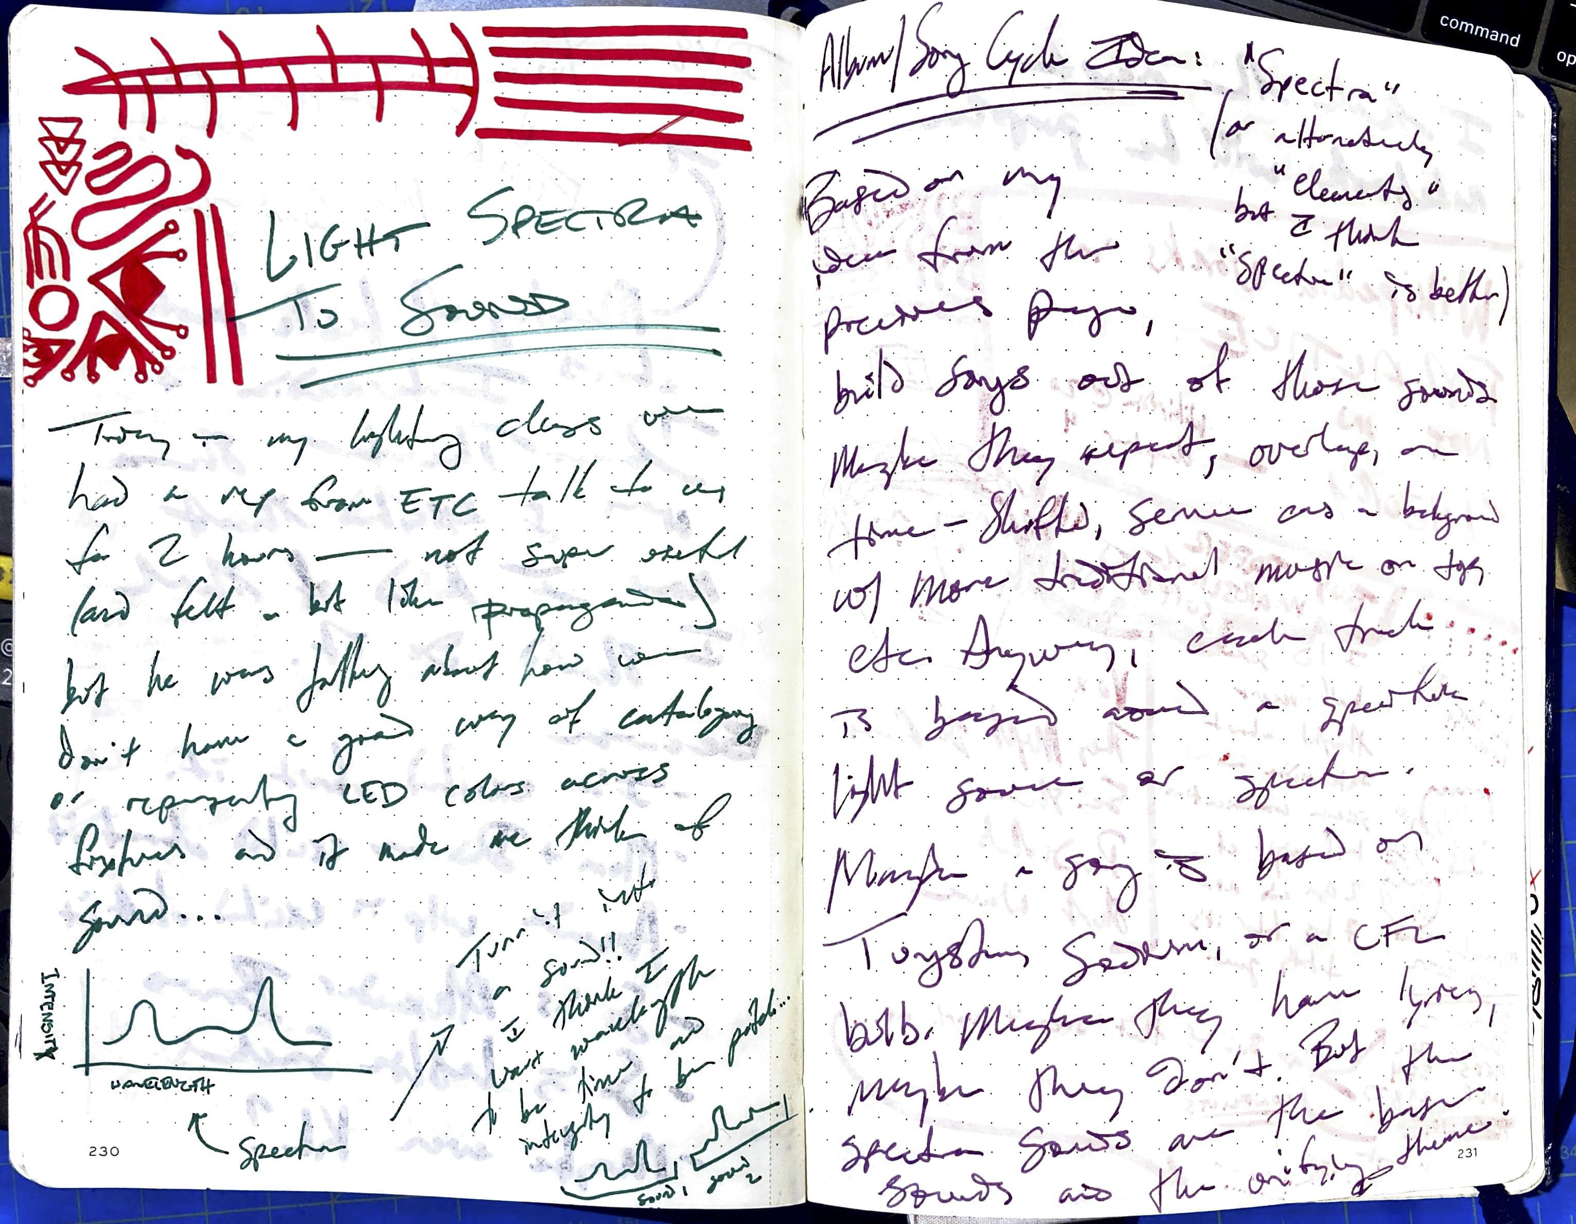 LIGHT SPECTRA
TO SOUND
Today in my lighting class we
had a rep from ETC talk to us
for 2 hours — not super useful
(and felt a bit like propaganda)
but he was talking about how we
don't have a good way of cataloging
or representing LED colors across
fixtures and it made me think of
sound...
INTENSITY
WAVELENGTH
Spectrum
Turn it into
a sound!!
I think I
want wavelength
to be time and
intensity to be pitch...
sound 1
sound 2
230
Album/Song Cycle Idea:
"Spectra"
(or
alternatively
"elements"
but I think
"Spectra" is better)
Based on my
idea from the
previous page,
build songs out of those sounds
Maybe they repeat, overlap, are
time-shifted, serve as a background
w/ more traditional music on top,
etc. Anyway, each track
is based around a specific
light source or spectrum.
Maybe a song is based on
Tungsten, Sodium, or a CFL
bulb. Maybe they have lyrics,
maybe they don't. But the
spectrum sounds are the base
sounds and the unifying theme.
231
command